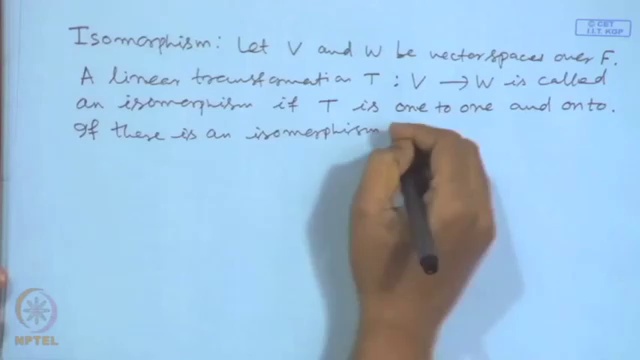 © CET
I.I.T. KGP
Isomorphism: Let V and W be vector spaces over F.
A linear transformation T : V → W is called
an isomorphism if T is one to one and onto.
If there is an isomorphism
NPTEL